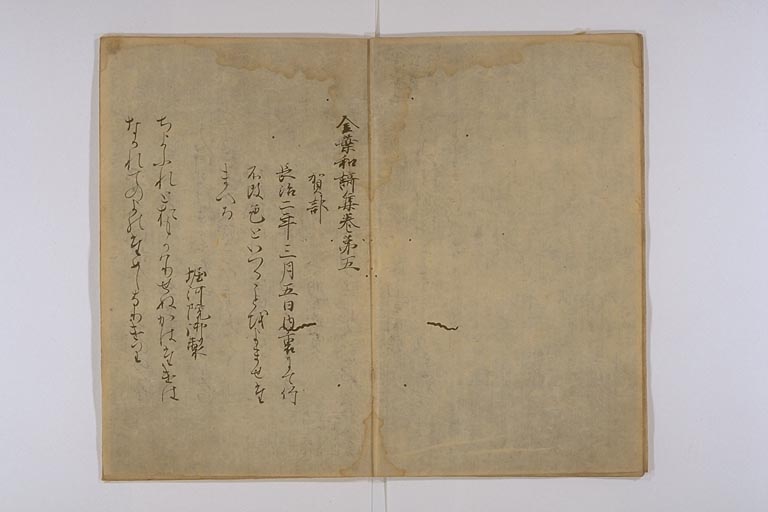 金葉和謌集巻第五
賀部
長治二年三月五日内裏にて竹
不改色といへることをよませた
まへる
堀河院御製
ちよふれとおもかはりせぬかはたけは
なかれてのよのためしなりけり